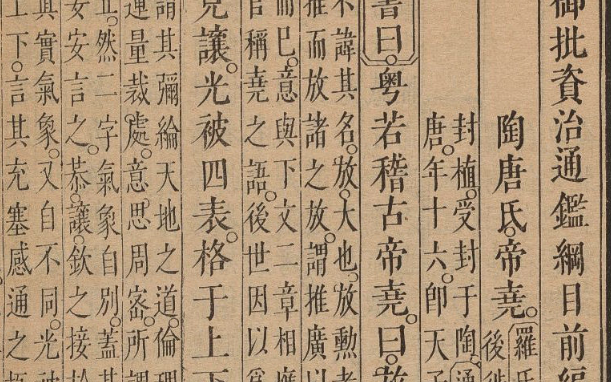 御批資治通鑑綱目前編
陶唐氏。帝堯。
羅氏
後徙
封植。受封于陶。通
唐。年十六。卽天子
書曰。粤若稽古帝堯。曰。放
不諱其名。放大也。放勲者
推而放諸之放。謂推廣以
而巳。意與下文二章相應
官稱堯之語。後世因以爲
克讓。光被四表。格于上下
謂其彌綸天地之道。倫理
運量裁處。意思周密。所謂
然二字氣象自別。蓋其
安安言之。恭讓。欽之接於
其實氣象。又自不同。光被
上下。言其充塞感通之極